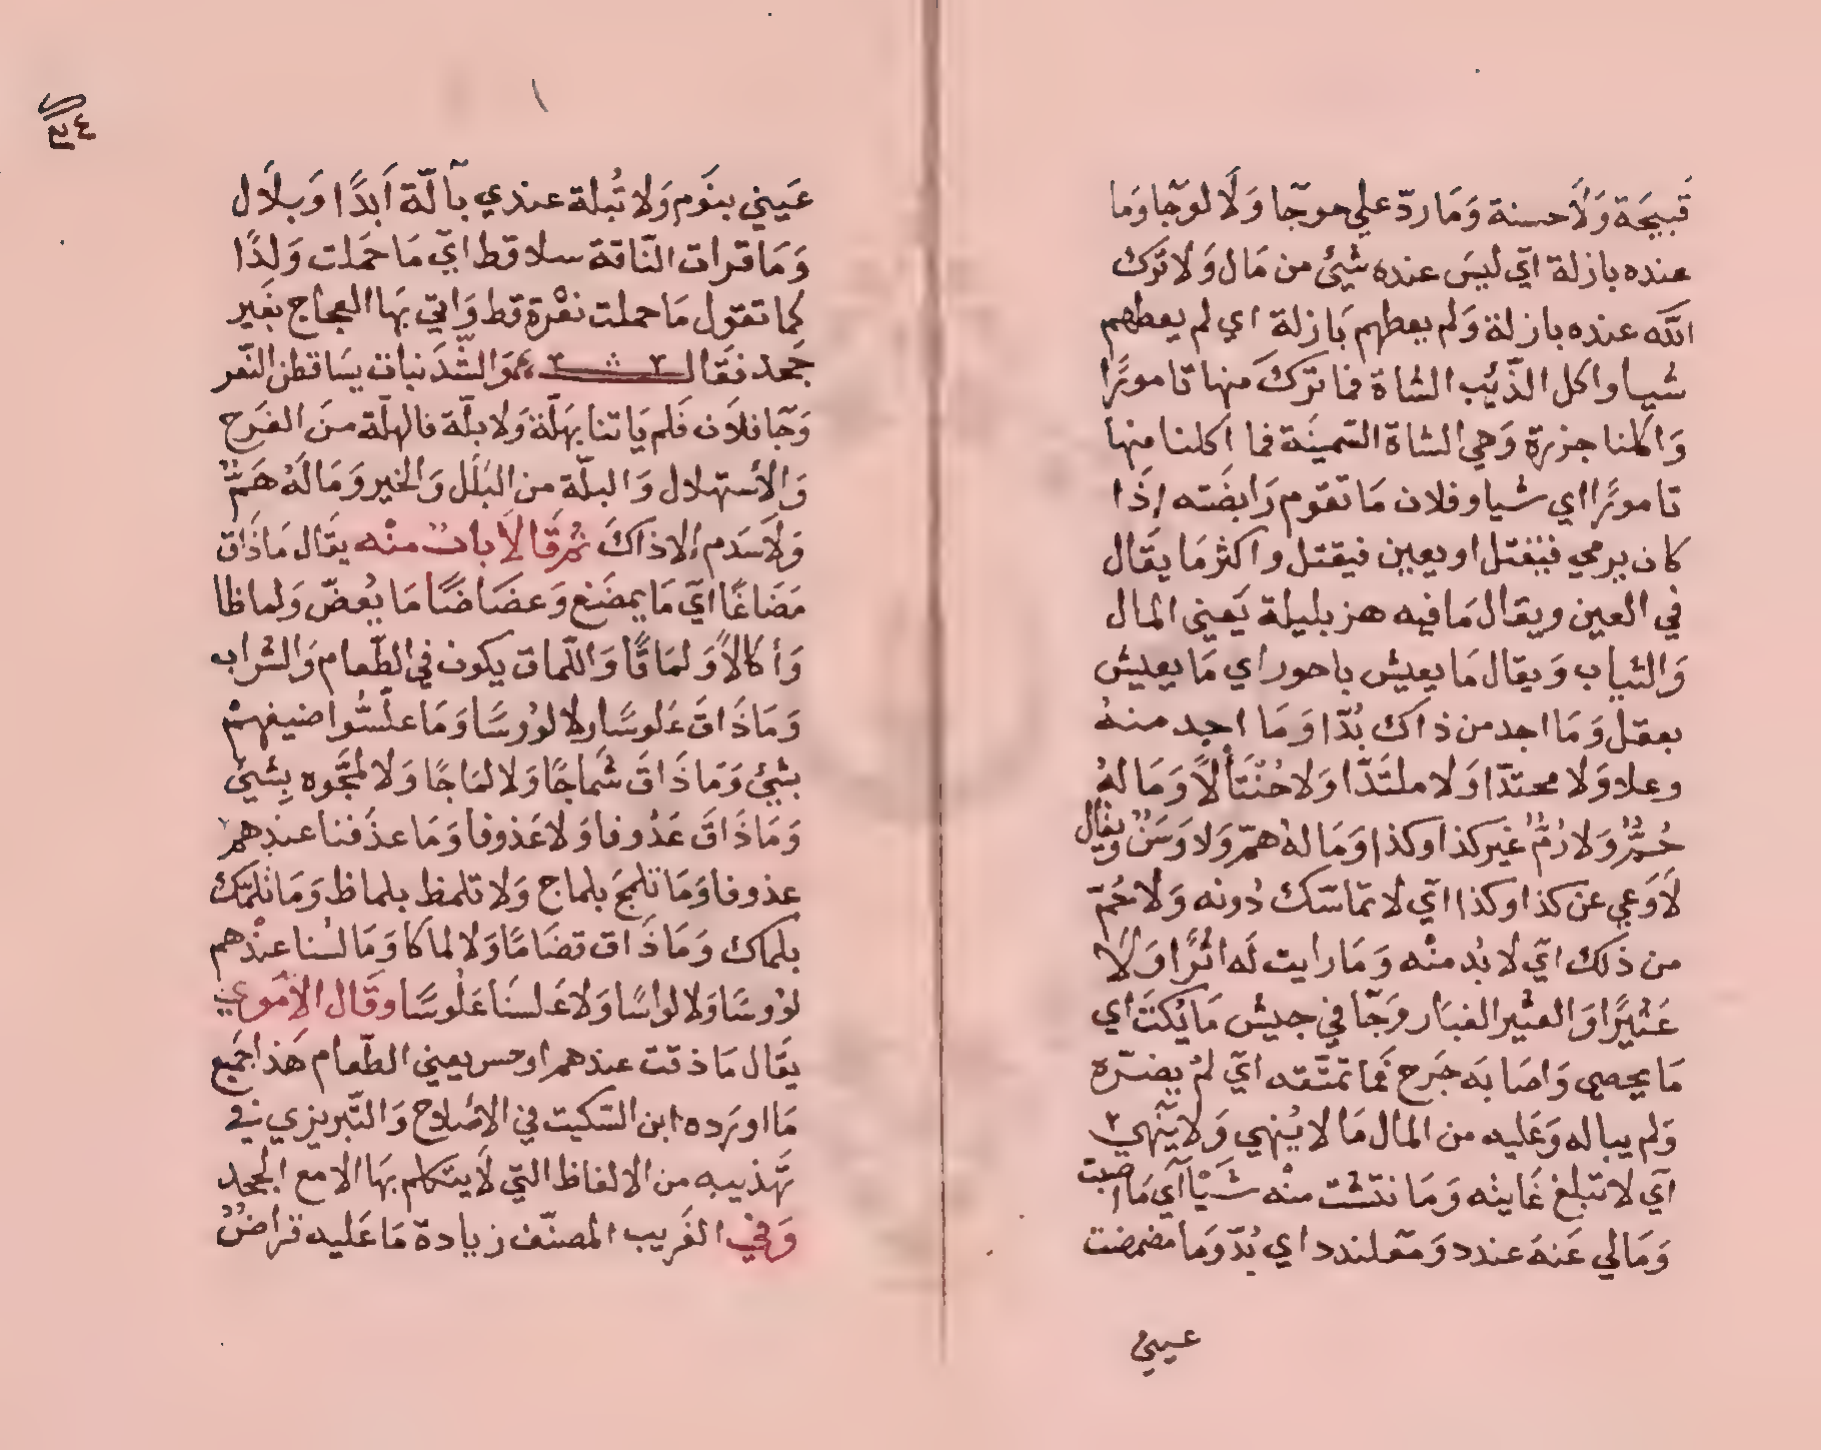 قَبيحَة وَلَا حسنة وَمَا ردّ علي حوجَا وَلَا لوجَا وَمَا
عنده بازلة اي ليسَ عنده شيئ من مَال وَلا تَرك
الله عنده بازلة وَلم يعطهم بَازلة اي لم يعطهم
شيا واكل الذّيب الشاة فما تركَ منها تامورًا
وَاكلنا جزرة وَهي الشاة السّمينَة فما اكلنا منها
تامورًا اي شيا وفلان مَا تقوم رَابضَته إذَا
كان يرمي فيقتل او يعين فيقتل واكثر مَا يقَال
في العين ويقال مَا فيه هزبليلة يَعني المال
وَالثياب وَيقال مَا يعيش باحور اي مَا يعيش
بعقل وَمَا اجد من ذاكَ بُدّا وَمَا اجد منهُ
وعلا وَلا محتدّا وَلا ملتَدّا وَلا حُنْتَألاً وَمَا لهُ
حُمٌّ وَلا رُمٌّ غيَر كذا وكذا وَمَا لهُ همّ وَلا وَسَنٌ ويقال
لَا وَعي عَن كذا وكذا اي لا تمَاسَك دُونه وَلا حُمّ
من ذَلك ايّ لا بُد منْه وَمَا رايت لَه اثرًا وَلَا
عَثيرًا وَالعثير الغبَار وَجَا في جيش مَا يُكتَ اي
مَا يحصى وَاصَابَه جَرح فَما تمقّقه ايّ لمْ يضرّه
وَلم يباله وَعَليه من المال مَا لا يُنهي وَلا يَنهي
ايّ لا تبلغ غَايته وَمَا نتشت منْه شَيْا اي مَا اصبت
وَمَا لي عَنهَ عندد وَمعلندد اي بُدّ وَمَا مضمضت
عيني
١
عَيني بنَوم وَلا تُبلة عندي بَآلّة اَبَدًا وَبلَال
وَمَا قرات النّاقة سلا قط ايّ مَا حَملت وَلدًا
كما تقول مَا حملت نعْرة قط وَاتي بَها العجاج بغَير
جَحد فقَال وَالشّدَنيات يسَاقطن النّعر
وَجَا فلَان فَلم يَاتنا بهَلّة وَلا بلّة فالهلّة منَ الفَرح
وَالاسْتهلال وَالبلّة من البَلَل وَالخير وَمَا لَهُ هَمٌّ
وَلَا سَدم إلا ذاكَ ثمَّ قَالَ بابٌ منْه يقَال مَا ذَاق
مَضَاغًا ايّ مَا يمضَغ وَعضَاضًا مَا يُعضّ وَلماظا
وَأكالاً وَلمَاقًا وَاللّماق يكون في الطّعام وَالشراب
وَمَا ذَاقَ عَلوسًا ولا لوْوسَا وَمَا علّسُوا ضيفهمْ
بشيْئ وَمَا ذَاقَ شَماجًا وَلا لمَاجًا وَلا لمجَّوه بِشيئ
وَمَا ذَاقَ عَدُوفا وَلا عَذوفا وَمَا عذَفنا عندهمْ
عذوفا وَمَا تلمجَ بلماج وَلا تلمظ بلماظ وَمَا تلمّك
بلماك وَمَا ذَاق قضَامًا وَلا لماكا وَمَا لسْنا عنْدهم
لوْوسًا وَلا لواسًا وَلا عَلسنَا عَلُوسًا وقَال الأمَوي
يقَال مَا ذقت عندهم اوجس يعني الطّعام هَذا جَميع
مَا اورَده ابن السّكيت في الاصْلاح وَالتّبريزي في
تهَذيبه من الالفاظ التي لَا يتكلم بهَا الا مع الجحد
وَفي الغَريب المصنّف زيادة مَا عَليه قراضٌ